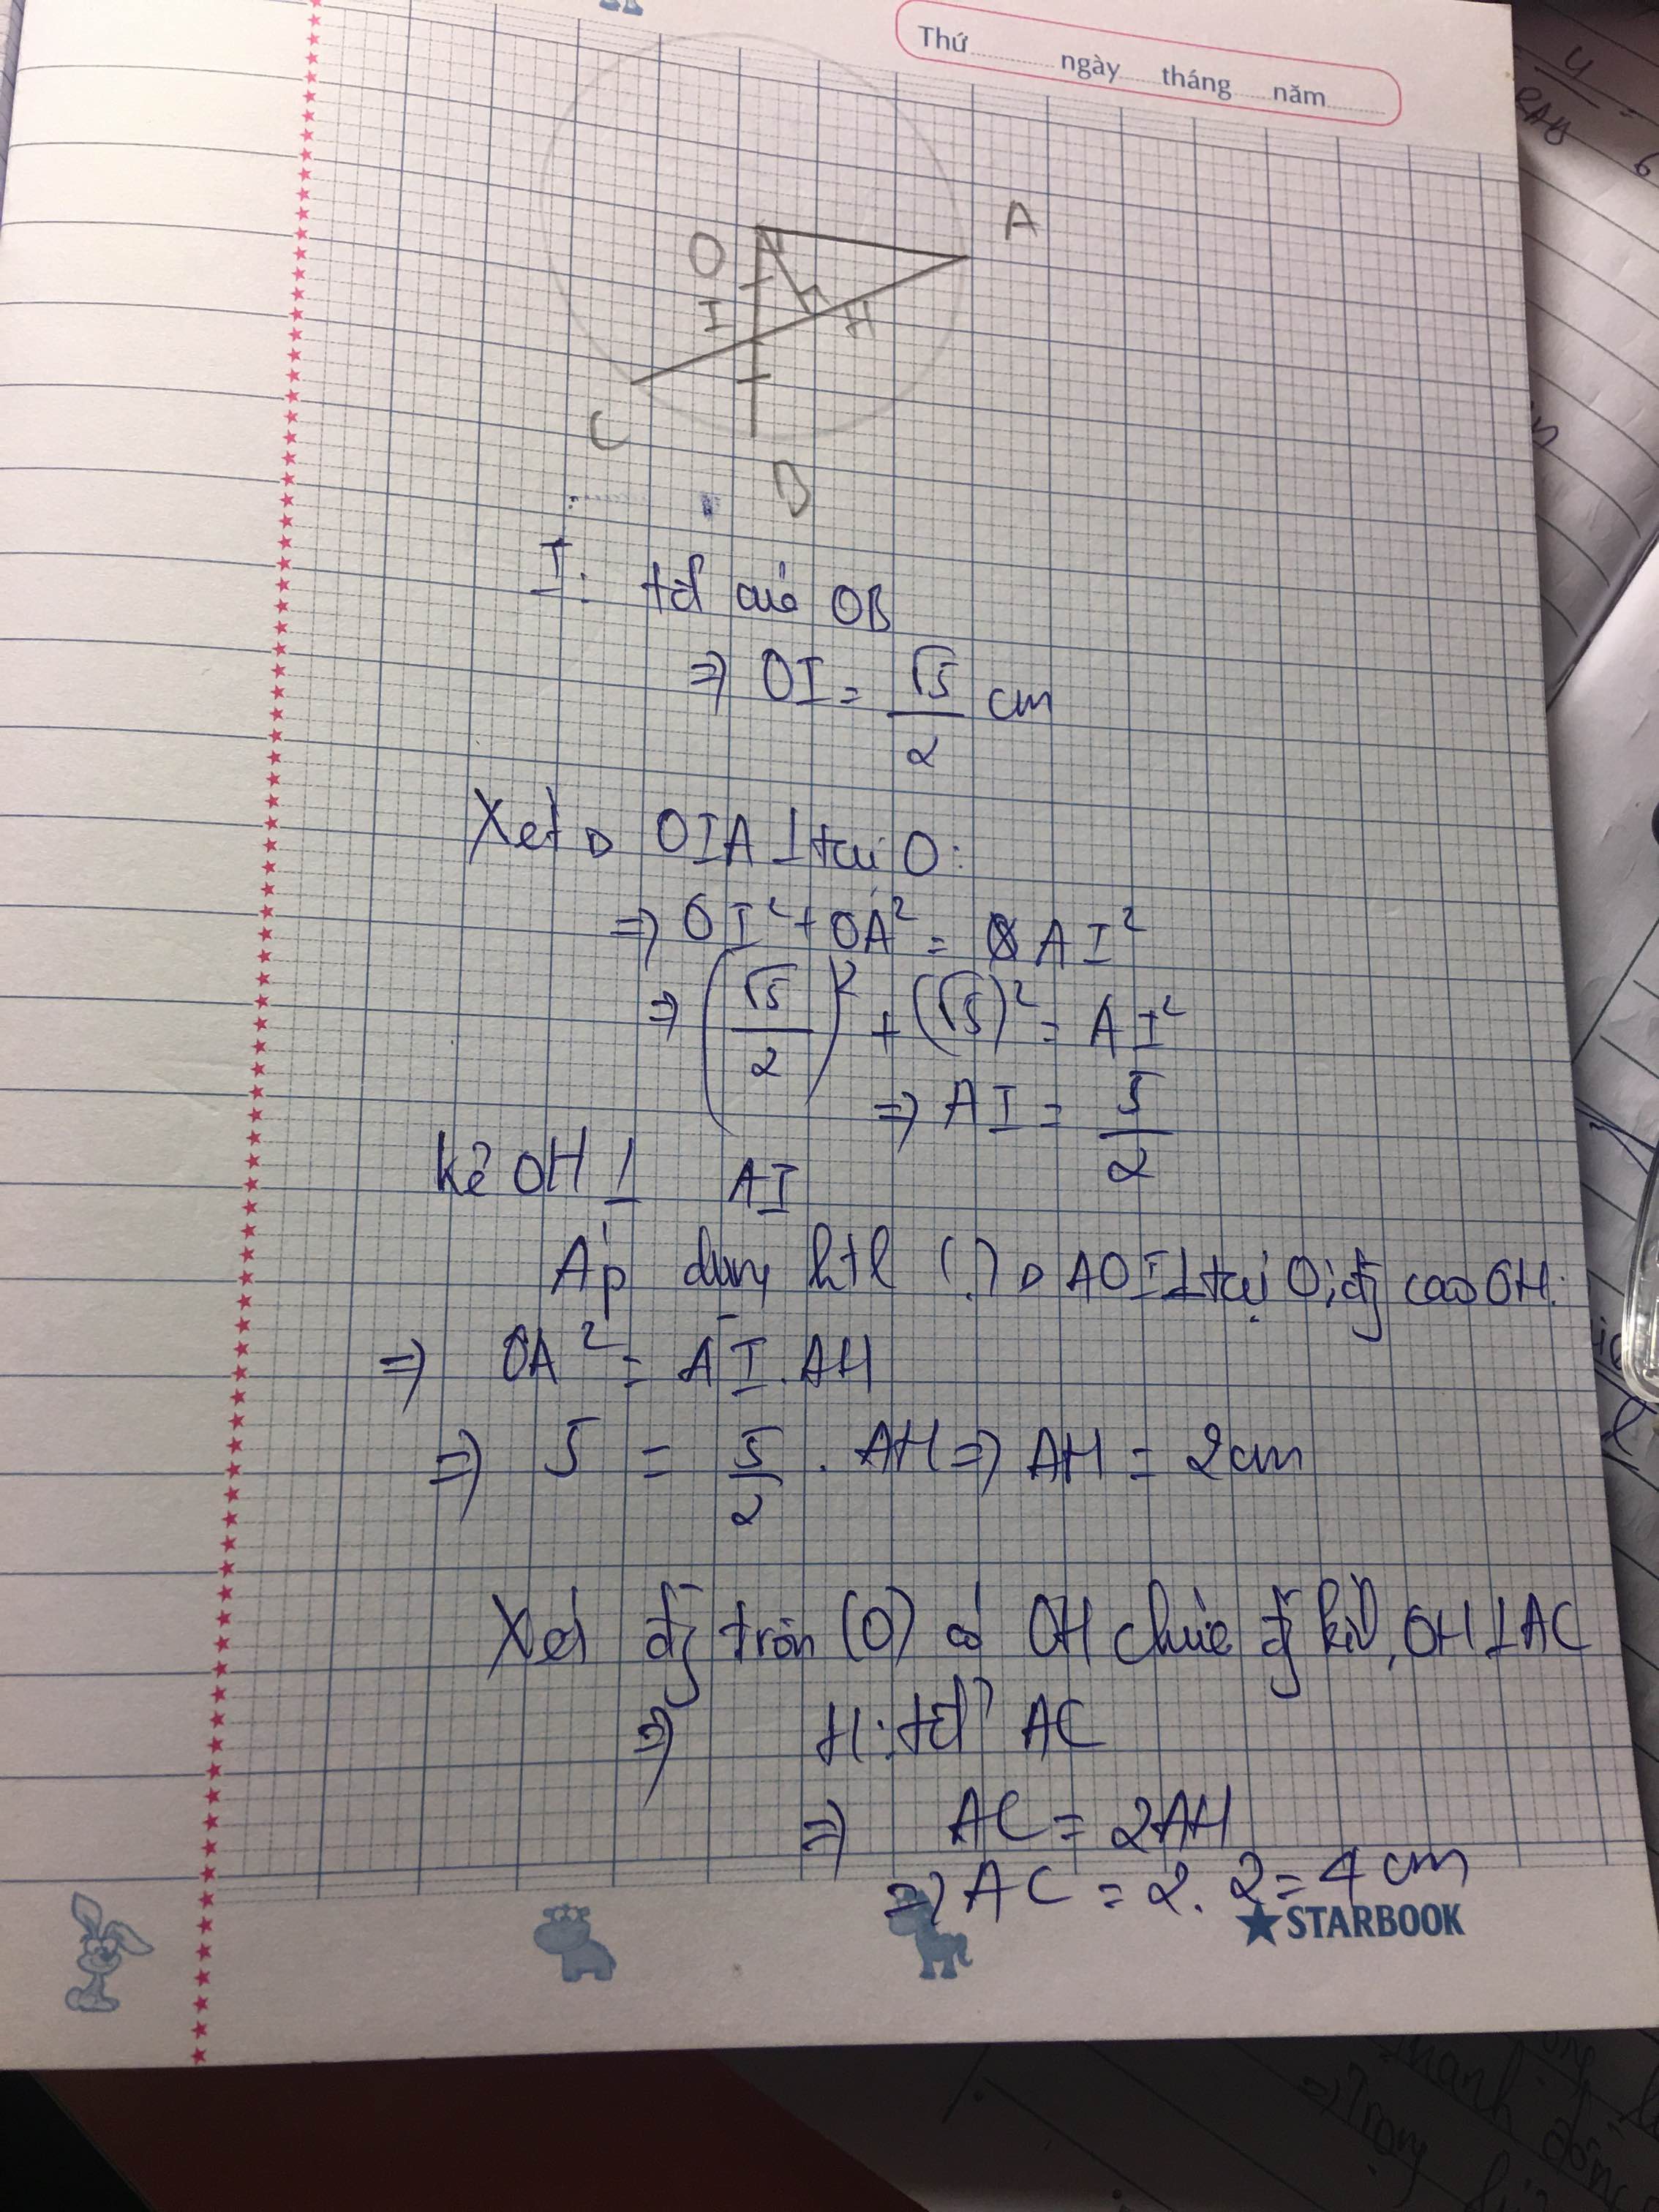 Thứ ngày tháng năm
A
O
I
H
C
B
I: tđ của OB
=> OI = √5/2 cm
Xét Δ OIA ⊥ tại O:
=> OI² + OA² = AI²
=> (√5/2)² + (√5)² = AI²
=> AI = 5/2
kẻ OH ⊥ AI
Áp dụng htl () Δ AOI ⊥ tại O, đg cao OH:
=> OA² = AI . AH
=> 5 = 5/2 . AH => AH = 2cm
Xét đg tròn (O) có OH chứa đg kính, OH ⊥ AC
=> H: tđ AC
=> AC = 2AH
=> AC = 2. 2 = 4 cm
★STARBOOK